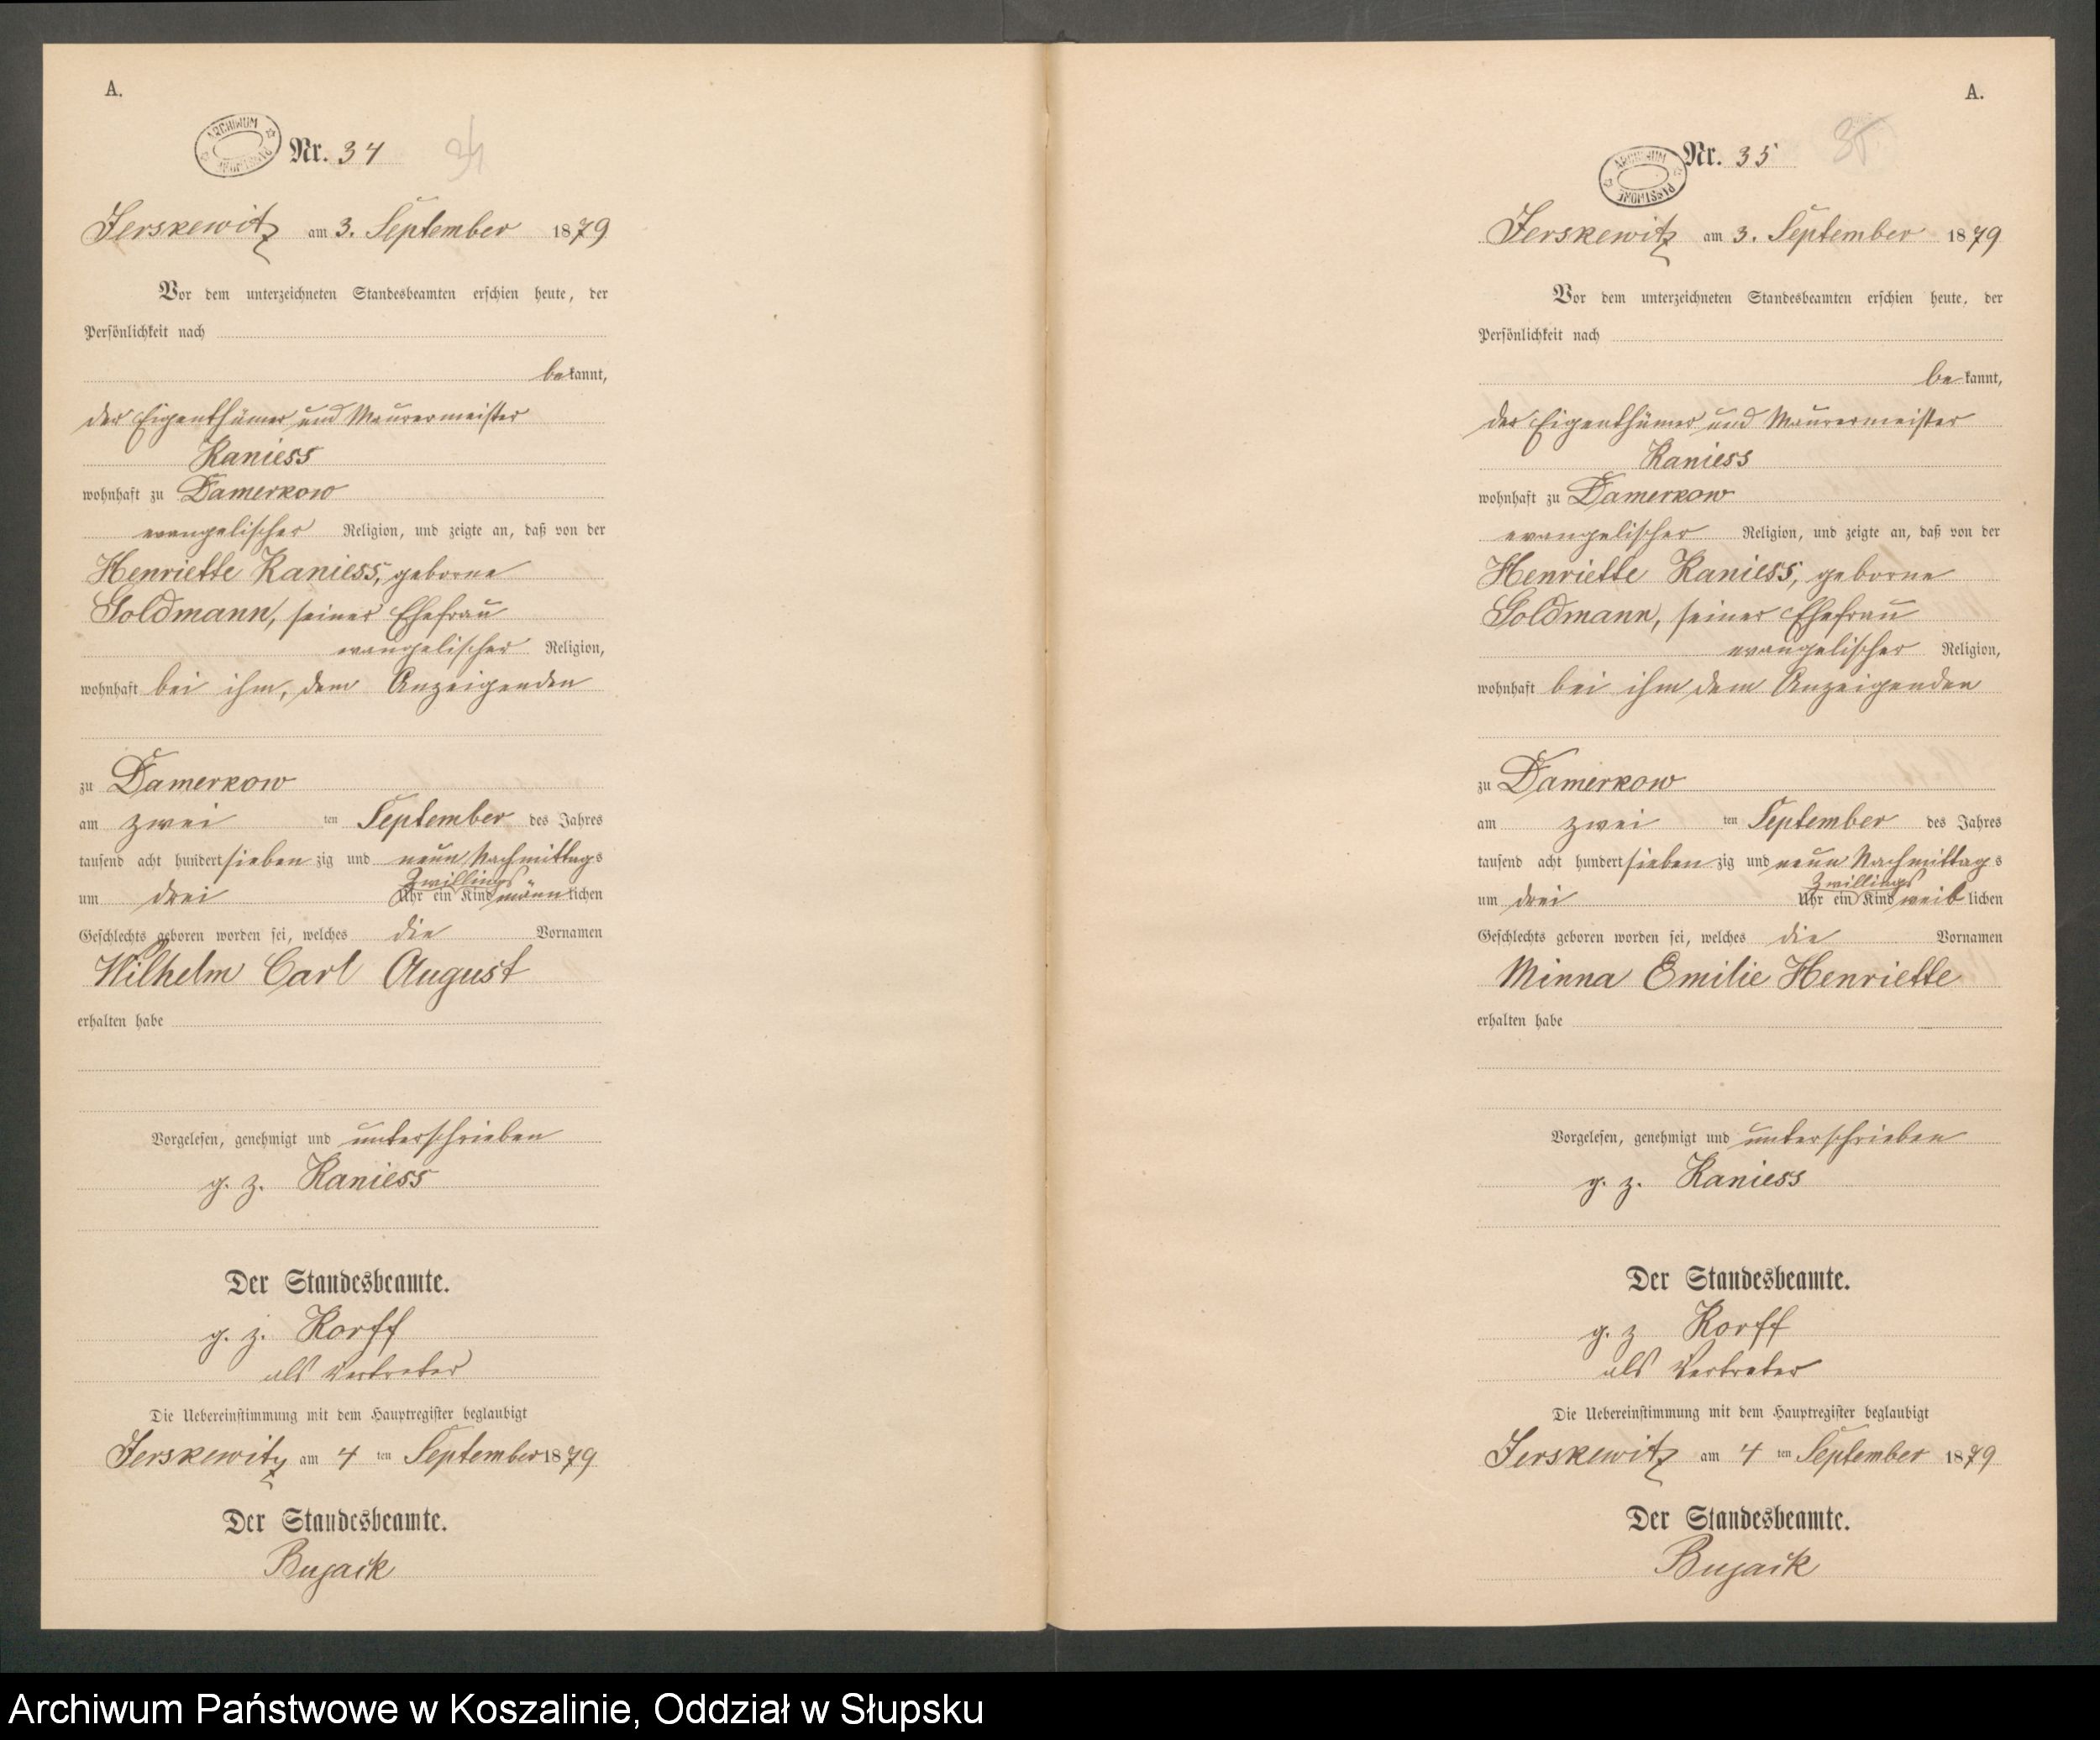 A.
ARCHIWUM PAŃSTWOWE
Nr. 34
34
Jerskewitz am 3. September 1879
Vor dem unterzeichneten Standesbeamten erschien heute, der
Persönlichkeit nach
bekannt,
der Eigenthümer und Maurermeister
Kaniess
wohnhaft zu Damerkow
evangelischer Religion, und zeigte an, daß von der
Henriette Kaniess, geborne
Goldmann, seiner Ehefrau
evangelischer Religion,
wohnhaft bei ihm, dem Anzeigenden
zu Damerkow
am zwei ten September des Jahres
tausend acht hundert sieben zig und neun Nachmittags
Zwillings
um drei Uhr ein Kind männlichen
Geschlechts geboren worden sei, welches die Vornamen
Wilhelm Carl August
erhalten habe
Vorgelesen, genehmigt und unterschrieben
g. z. Kaniess
Der Standesbeamte.
g. z. Korff
als Vertreter
Die Uebereinstimmung mit dem Hauptregister beglaubigt
Jerskewitz am 4 ten September 1879
Der Standesbeamte.
Bugaik
A.
ARCHIWUM PAŃSTWOWE
Nr. 35
35
Jerskewitz am 3. September 1879
Vor dem unterzeichneten Standesbeamten erschien heute, der
Persönlichkeit nach
bekannt,
der Eigenthümer und Maurermeister
Kaniess
wohnhaft zu Damerkow
evangelischer Religion, und zeigte an, daß von der
Henriette Kaniess, geborne
Goldmann, seiner Ehefrau
evangelischer Religion,
wohnhaft bei ihm dem Anzeigenden
zu Damerkow
am zwei ten September des Jahres
tausend acht hundert sieben zig und neun Nachmittags
Zwillings
um drei Uhr ein Kind weiblichen
Geschlechts geboren worden sei, welches die Vornamen
Minna Emilie Henriette
erhalten habe
Vorgelesen, genehmigt und unterschrieben
g. z. Kaniess
Der Standesbeamte.
g. z Korff
als Vertreter
Die Uebereinstimmung mit dem Hauptregister beglaubigt
Jerskewitz am 4 ten September 1879
Der Standesbeamte.
Bugaik
Archiwum Państwowe w Koszalinie, Oddział w Słupsku